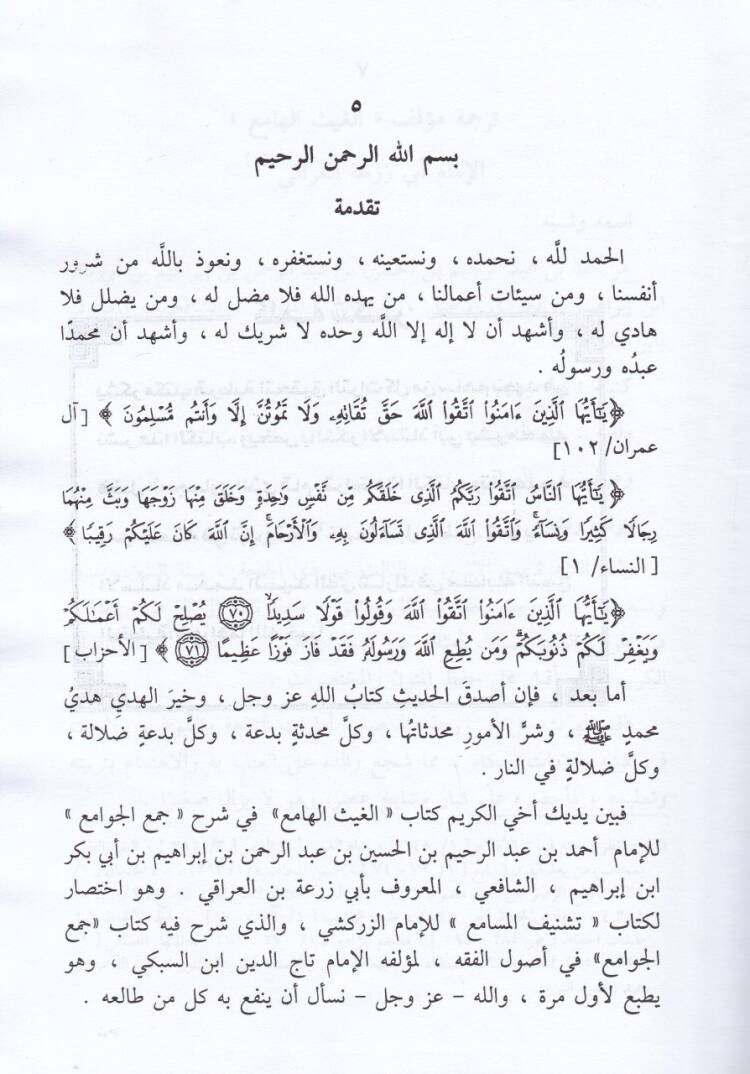 ٥
بسم الله الرحمن الرحيم
تقدمة
الحمد للَّه ، نحمده ، ونستعينه ، ونستغفره ، ونعوذ باللَّه من شرور
أنفسنا ، ومن سيئات أعمالنا ، من يهده الله فلا مضل له ، ومن يضلل فلا
هادي له ، وأشهد أن لا إله إلا اللَّه وحده لا شريك له ، وأشهد أن محمدًا
عبدُه ورسولُه .
﴿ يَٰٓأَيُّهَا ٱلَّذِينَ ءَامَنُوا۟ ٱتَّقُوا۟ ٱللَّهَ حَقَّ تُقَاتِهِۦ وَلَا تَمُوتُنَّ إِلَّا وَأَنتُم مُّسْلِمُونَ ﴾ [آل
عمران/ ١٠٢]
﴿ يَٰٓأَيُّهَا ٱلنَّاسُ ٱتَّقُوا۟ رَبَّكُمُ ٱلَّذِى خَلَقَكُم مِّن نَّفْسٍ وَٰحِدَةٍ وَخَلَقَ مِنْهَا زَوْجَهَا وَبَثَّ مِنْهُمَا
رِجَالًا كَثِيرًا وَنِسَآءً ۚ وَٱتَّقُوا۟ ٱللَّهَ ٱلَّذِى تَسَآءَلُونَ بِهِۦ وَٱلْأَرْحَامَ ۚ إِنَّ ٱللَّهَ كَانَ عَلَيْكُمْ رَقِيبًا ﴾
[النساء/ ١]
﴿ يَٰٓأَيُّهَا ٱلَّذِينَ ءَامَنُوا۟ ٱتَّقُوا۟ ٱللَّهَ وَقُولُوا۟ قَوْلًا سَدِيدًا ﴿٧٠﴾ يُصْلِحْ لَكُمْ أَعْمَٰلَكُمْ
وَيَغْفِرْ لَكُمْ ذُنُوبَكُمْ ۗ وَمَن يُطِعِ ٱللَّهَ وَرَسُولَهُۥ فَقَدْ فَازَ فَوْزًا عَظِيمًا ﴿٧١﴾ ﴾ [الأحزاب]
أما بعد ، فإن أصدق الحديثِ كتابُ اللهِ عز وجل ، وخيرَ الهديِ هديُ
محمدٍ ﷺ ، وشرُّ الأمورِ محدثاتُها ، وكلَّ محدثةٍ بدعة ، وكلَّ بدعةٍ ضلالة ،
وكلَّ ضلالةٍ في النار .
فبين يديك أخي الكريم كتاب « الغيث الهامع » في شرح « جمع الجوامع »
للإمام أحمد بن عبد الرحيم بن الحسين بن عبد الرحمن بن إبراهيم بن أبي بكر
ابن إبراهيم ، الشافعي ، المعروف بأبي زرعة بن العراقي . وهو اختصار
لكتاب « تشنيف المسامع » للإمام الزركشي ، والذي شرح فيه كتاب «جمع
الجوامع» في أصول الفقه ، لمؤلفه الإمام تاج الدين ابن السبكي ، وهو
يطبع لأول مرة ، والله – عز وجل – نسأل أن ينفع به كل من طالعه .